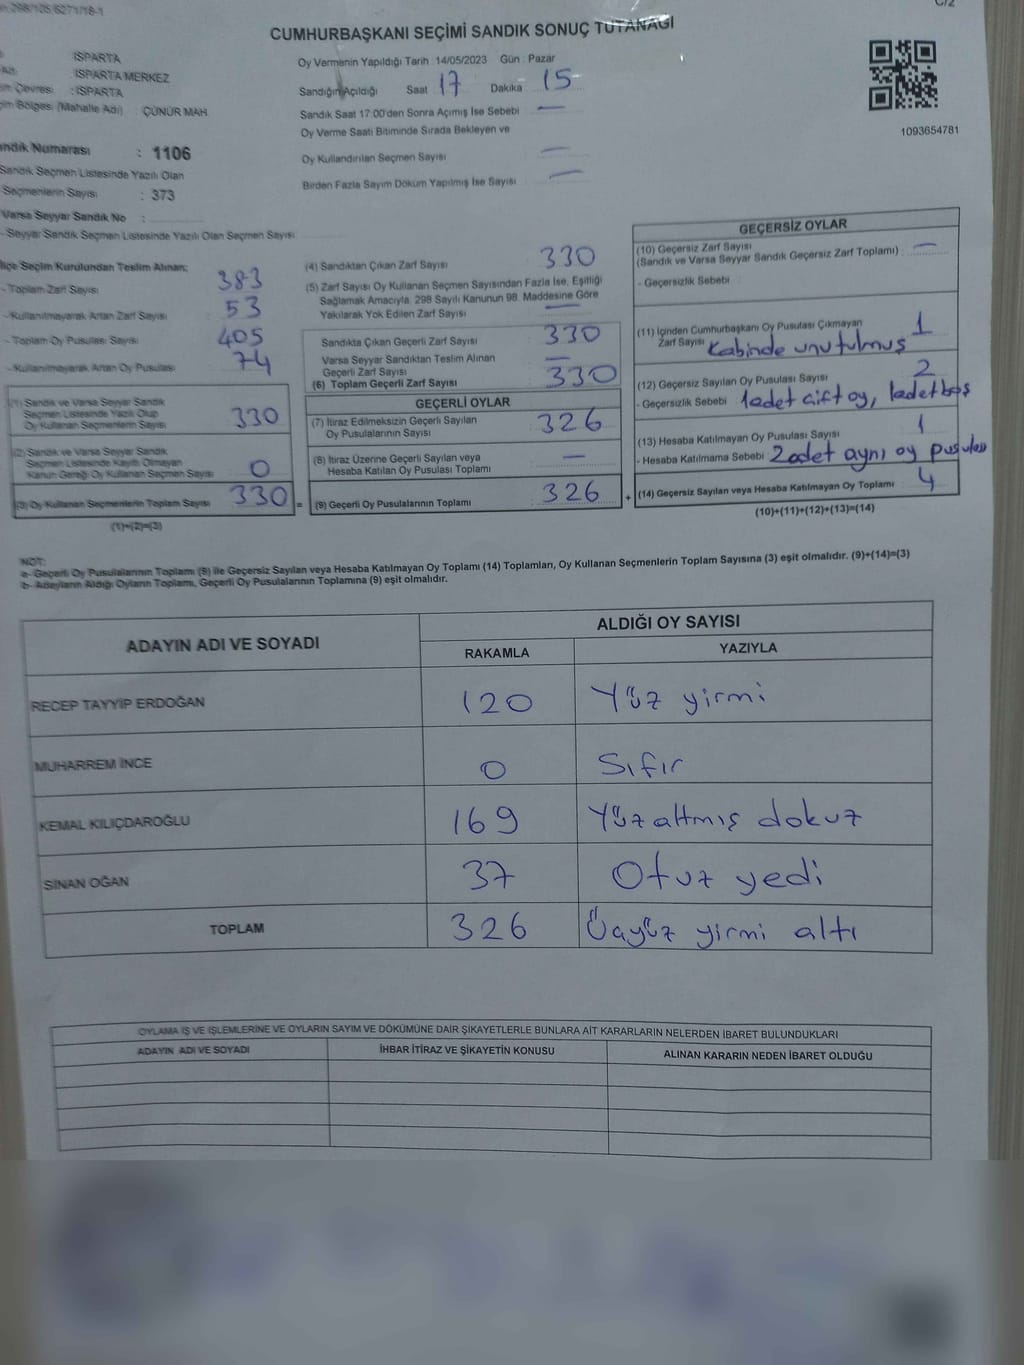 CUMHURBAŞKANI SEÇİMİ SANDIK SONUÇ TUTANAĞI
C/2
1093654781
: ISPARTA
: ISPARTA MERKEZ
: ISPARTA
(Mahalle Adı) : ÇÜNÜR MAH.
Sandık Numarası : 1106
Sandık Seçmen Listesinde Yazılı Olan
Seçmenlerin Sayısı : 373
Varsa Seyyar Sandık No :
- Seyyar Sandık Seçmen Listesinde Yazılı Olan Seçmen Sayısı
Oy Vermenin Yapıldığı Tarih : 14/05/2023 Gün : Pazar
Sandığın Açıldığı Saat 17 Dakika 15
Sandık Saat 17:00'den Sonra Açımış İse Sebebi —
Oy Verme Saati Bitiminde Sırada Bekleyen ve
Oy Kullandırılan Seçmen Sayısı —
Birden Fazla Sayım Döküm Yapılmış İse Sayısı —
İlçe Seçim Kurulundan Teslim Alınan;
- Toplam Zarf Sayısı 383
- Kullanılmayarak Artan Zarf Sayısı 53
- Toplam Oy Pusulası Sayısı 405
- Kullanılmayarak Artan Oy Pusulası 74
(1) Sandık ve Varsa Seyyar Sandık
Seçmen Listesinde Yazılı Olup
Oy Kullanan Seçmenlerin Sayısı 330
(2) Sandık ve Varsa Seyyar Sandık
Seçmen Listesinde Kayıtlı Olmayan
Kanun Gereği Oy Kullanan Seçmen Sayısı 0
(3) Oy Kullanan Seçmenlerin Toplam Sayısı 330 =
(1)+(2)=(3)
(4) Sandıktan Çıkan Zarf Sayısı 330
(5) Zarf Sayısı Oy Kullanan Seçmen Sayısından Fazla İse, Eşitliği
Sağlamak Amacıyla, 298 Sayılı Kanunun 98. Maddesine Göre
Yakılarak Yok Edilen Zarf Sayısı —
Sandıkta Çıkan Geçerli Zarf Sayısı 330
Varsa Seyyar Sandıktan Teslim Alınan
Geçerli Zarf Sayısı —
(6) Toplam Geçerli Zarf Sayısı 330
GEÇERLİ OYLAR
(7) İtiraz Edilmeksizin Geçerli Sayılan
Oy Pusulalarının Sayısı 326
(8) İtiraz Üzerine Geçerli Sayılan veya
Hesaba Katılan Oy Pusulası Toplamı —
(9) Geçerli Oy Pusulalarının Toplamı 326 +
GEÇERSİZ OYLAR
(10) Geçersiz Zarf Sayısı
(Sandık ve Varsa Seyyar Sandık Geçersiz Zarf Toplamı) —
- Geçersizlik Sebebi
(11) İçinden Cumhurbaşkanı Oy Pusulası Çıkmayan 1
Zarf Sayısı Kabinde unutulmuş
(12) Geçersiz Sayılan Oy Pusulası Sayısı 2
- Geçersizlik Sebebi 1adet çift oy, 1adet boş
(13) Hesaba Katılmayan Oy Pusulası Sayısı 1
- Hesaba Katılmama Sebebi 2adet aynı oy pusulası
(14) Geçersiz Sayılan veya Hesaba Katılmayan Oy Toplamı 4
(10)+(11)+(12)+(13)=(14)
NOT:
a- Geçerli Oy Pusulalarının Toplamı (9) ile Geçersiz Sayılan veya Hesaba Katılmayan Oy Toplamı (14) Toplamları, Oy Kullanan Seçmenlerin Toplam Sayısına (3) eşit olmalıdır. (9)+(14)=(3)
b- Adayların Aldığı Oyların Toplamı, Geçerli Oy Pusulalarının Toplamına (9) eşit olmalıdır.
ADAYIN ADI VE SOYADI
ALDIĞI OY SAYISI
RAKAMLA YAZIYLA
RECEP TAYYİP ERDOĞAN 120 Yüz yirmi
MUHARREM İNCE 0 Sıfır
KEMAL KILIÇDAROĞLU 169 Yüz altmış dokuz
SİNAN OĞAN 37 Otuz yedi
TOPLAM 326 Üçyüz yirmi altı
OYLAMA İŞ VE İŞLEMLERİNE VE OYLARIN SAYIM VE DÖKÜMÜNE DAİR ŞİKAYETLERLE BUNLARA AİT KARARLARIN NELERDEN İBARET BULUNDUKLARI
ADAYIN ADI VE SOYADI İHBAR İTİRAZ VE ŞİKAYETİN KONUSU ALINAN KARARIN NEDEN İBARET OLDUĞU